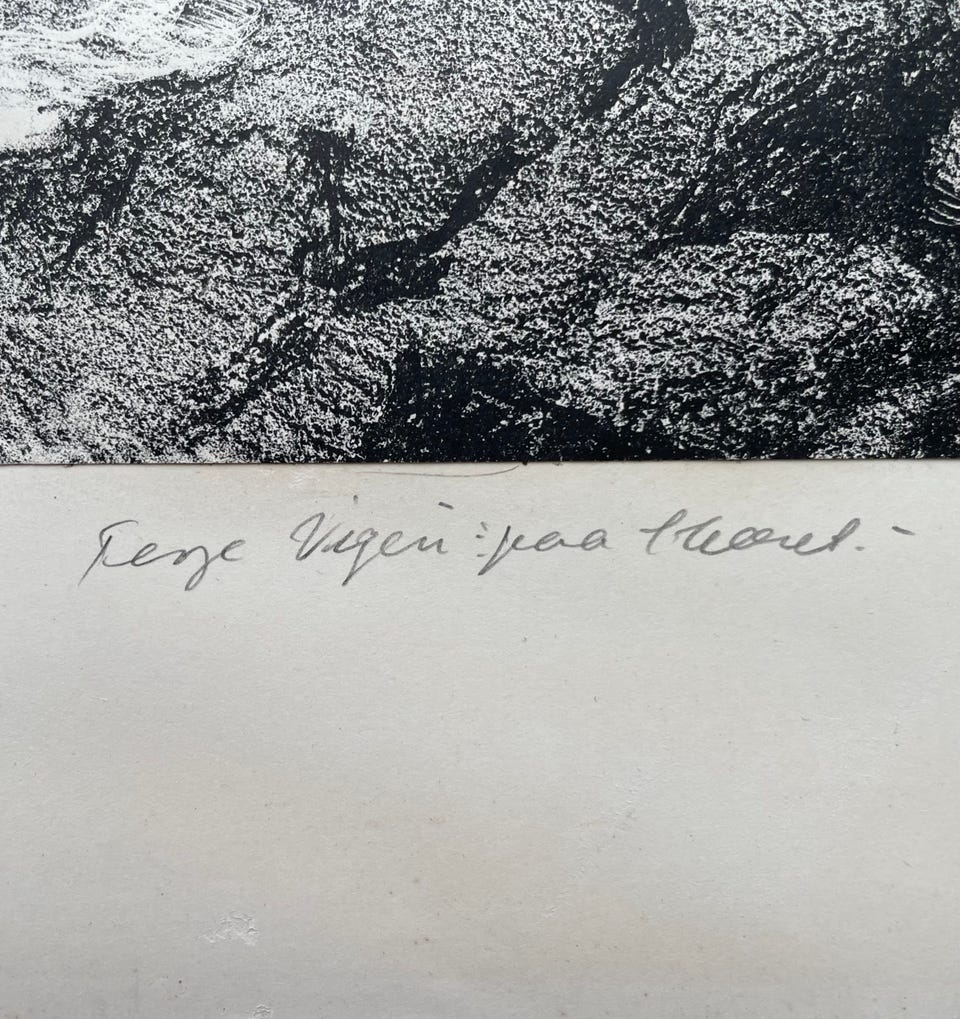 Terje Vigen: paa Skæret.-